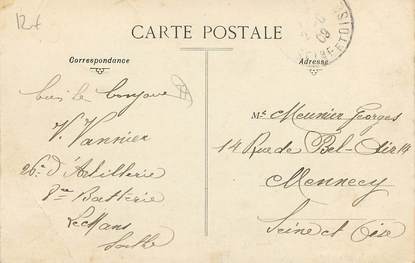 12f
CARTE POSTALE
Correspondance
Adresse
bonjour
V. Vannier
26e d'Artillerie
Batterie
Le Mans
Sarthe
Mr Meunier Georges
14 Rue de Bel-Air 14
Mennecy
Seine et Oise